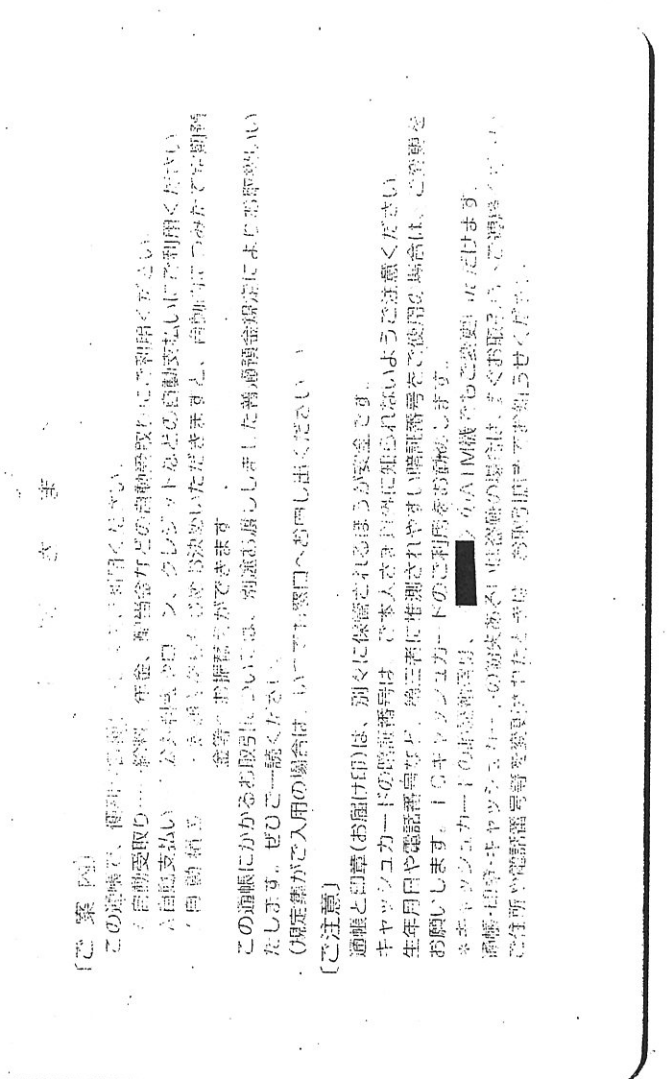 〔ご案内〕
この通帳で、便利な
自動受取り……給料、年金、配当金などの自動受取りにご利用ください。
自動支払い
クレジットなどの自動支払いにご利用ください
自動積立
お決めいただきますと、自動的につみたて定期預
金等へお振替えができます
この通帳にかかるお取引については、別途お渡ししました普通預金規定によりお取扱いい
たします。ぜひご一読ください。
(規定集がご入用の場合は、いつでも窓口へお申し出ください。)
〔ご注意〕
通帳と印章(お届け印)は、別々に保管されるほうが安全です。
キャッシュカードの暗証番号は、ご本人さま以外に知られないようご注意ください
生年月日や電話番号など、第三者に推測されやすい暗証番号をご使用の場合は、ご変更を
お願いします。ICキャッシュカードのご利用をお勧めします。
*キャッシュカードの暗証番号は、 のATM機でもご変更いただけます。
通帳・印章・キャッシュカードの紛失あるいは盗難の場合は、すぐお取引店へご連絡ください
ご住所や電話番号等を変更されたときは、お取引店までお知らせください。